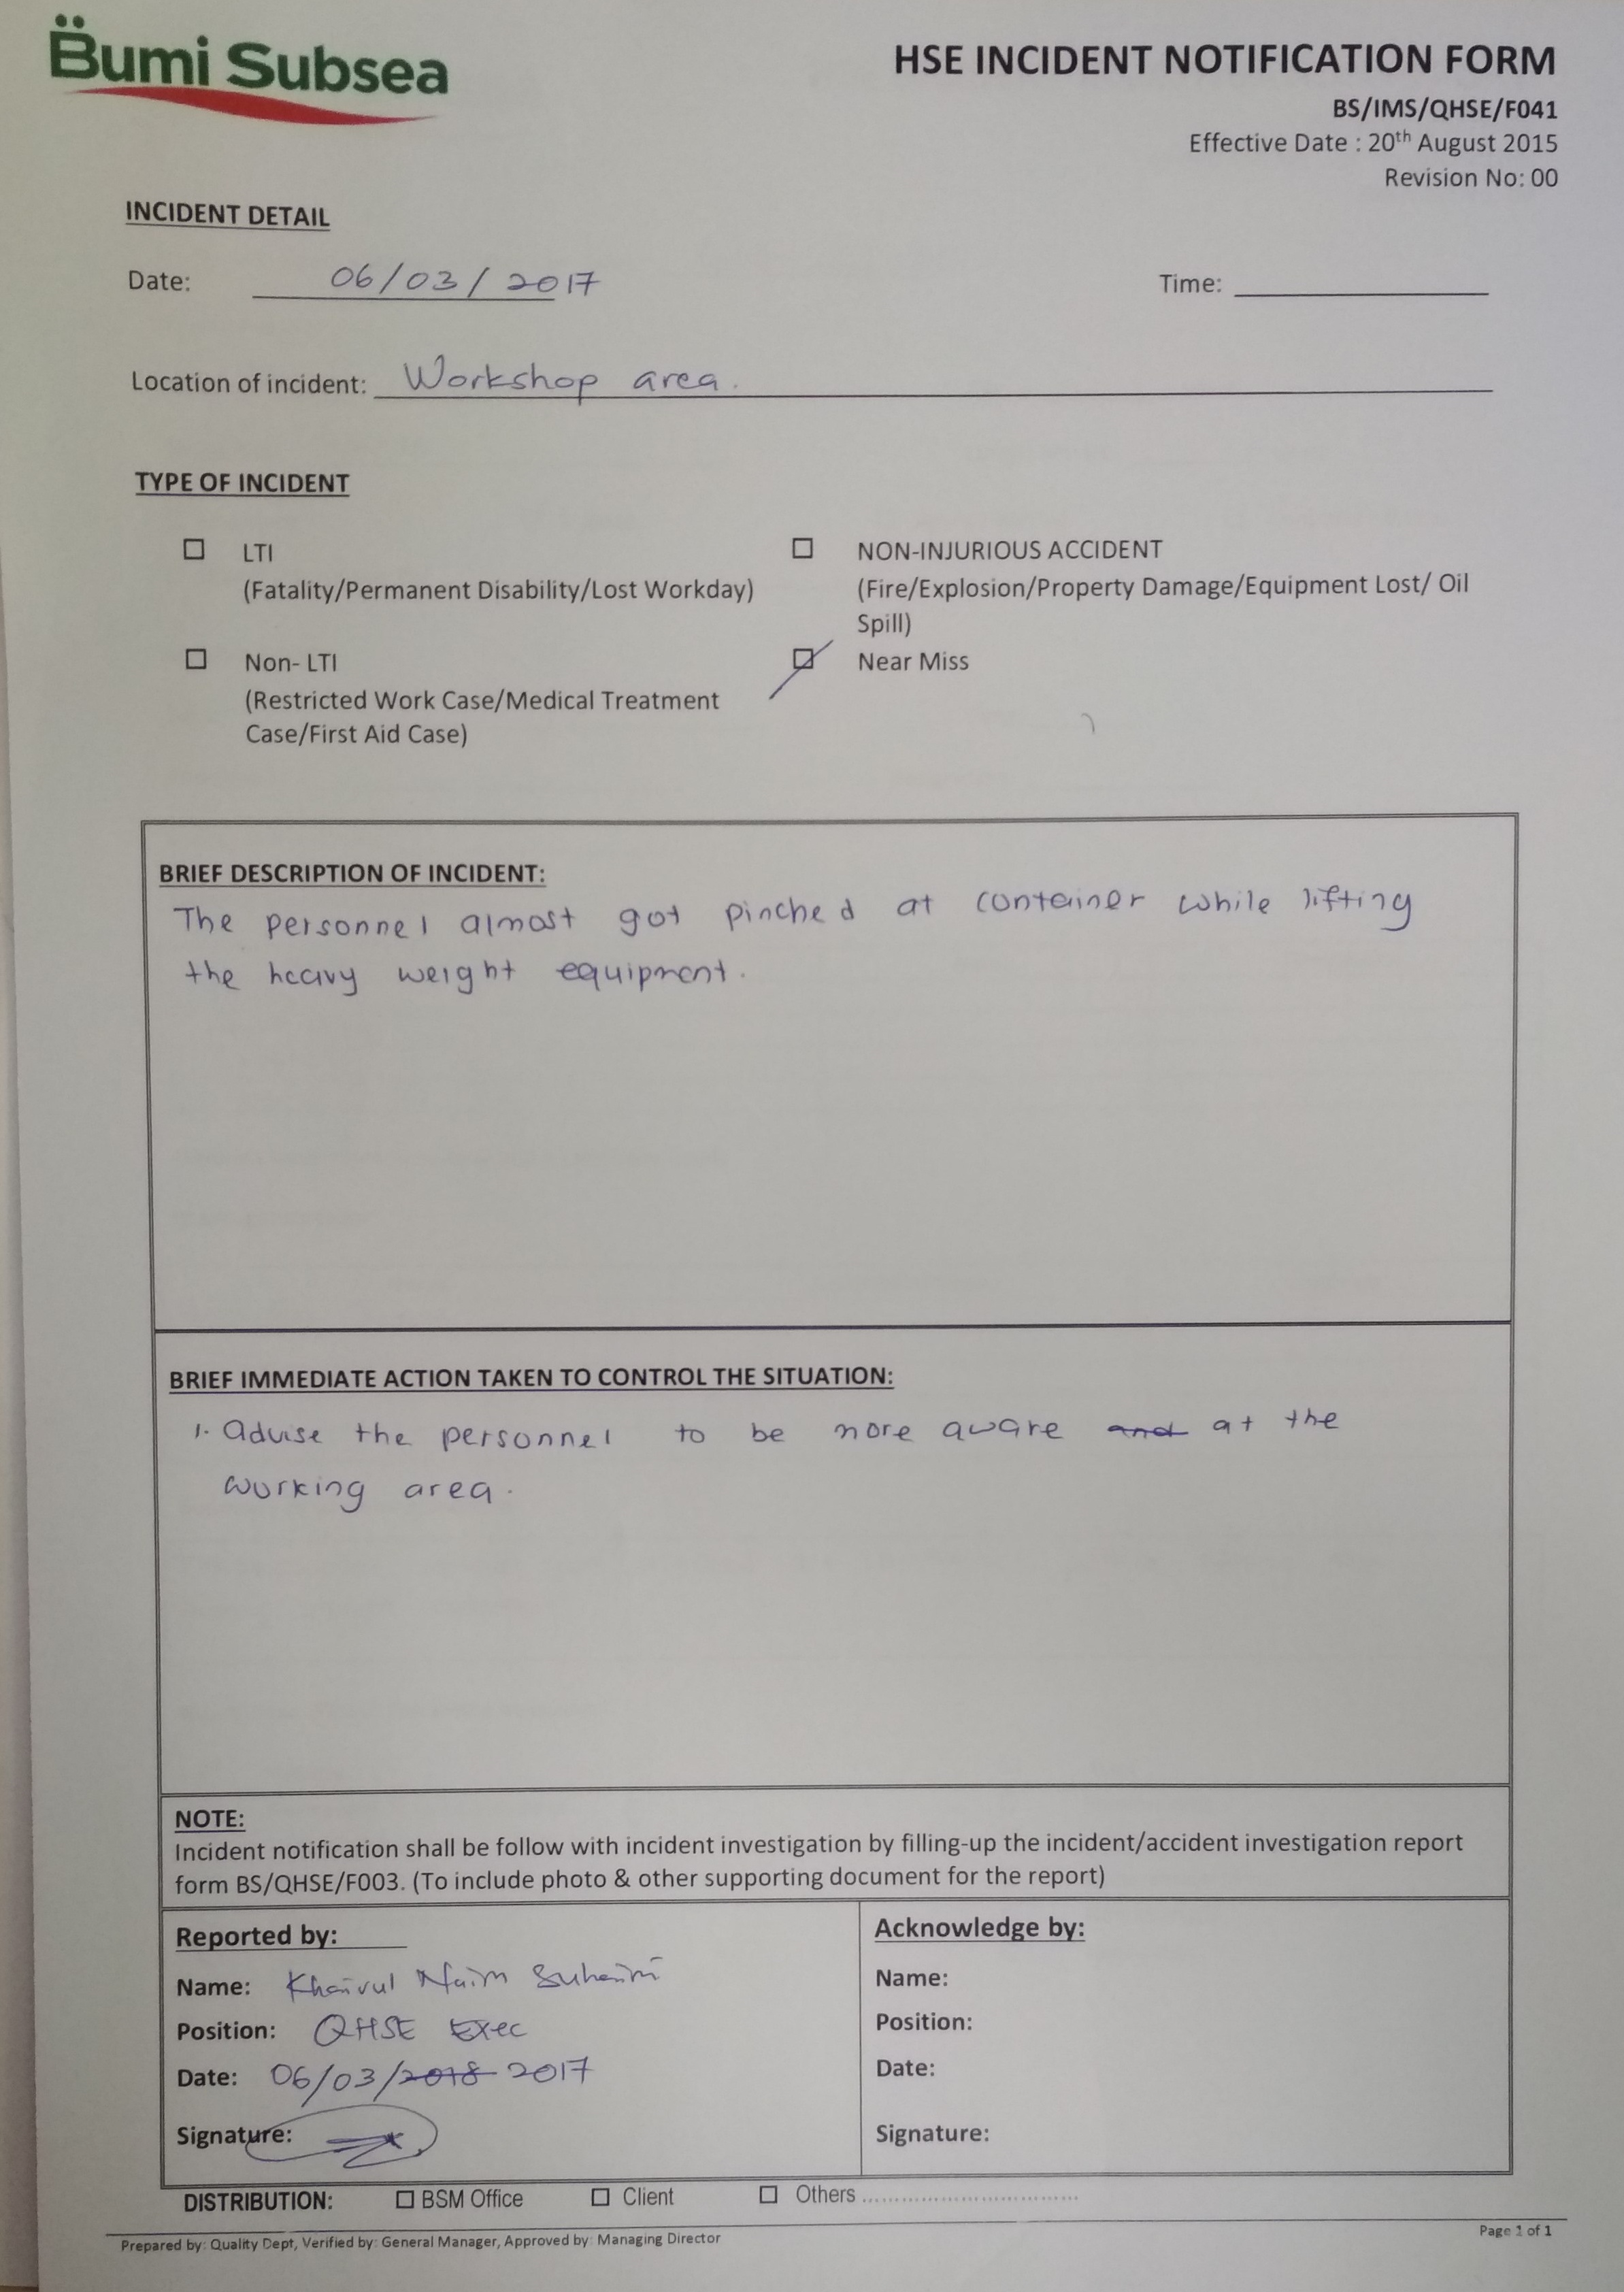 Bumi Subsea
HSE INCIDENT NOTIFICATION FORM
BS/IMS/QHSE/F041
Effective Date : 20th August 2015
Revision No: 00
INCIDENT DETAIL
Date: 06/03/2017
Time:
Location of incident: Workshop area.
TYPE OF INCIDENT
LTI
(Fatality/Permanent Disability/Lost Workday)
NON-INJURIOUS ACCIDENT
(Fire/Explosion/Property Damage/Equipment Lost/ Oil
Spill)
Non- LTI
(Restricted Work Case/Medical Treatment
Case/First Aid Case)
Near Miss
BRIEF DESCRIPTION OF INCIDENT:
The personnel almost got pinched at container while lifting
the heavy weight equipment.
BRIEF IMMEDIATE ACTION TAKEN TO CONTROL THE SITUATION:
1. Advise the personnel to be more aware and at the
working area.
NOTE:
Incident notification shall be follow with incident investigation by filling-up the incident/accident investigation report
form BS/QHSE/F003. (To include photo & other supporting document for the report)
Reported by:
Name: Khairul Naim Suhaimi
Position: QHSE Exec
Date: 06/03/2018 2017
Signature:
Acknowledge by:
Name:
Position:
Date:
Signature:
DISTRIBUTION: BSM Office Client Others ................................
Prepared by: Quality Dept, Verified by: General Manager, Approved by: Managing Director
Page 1 of 1